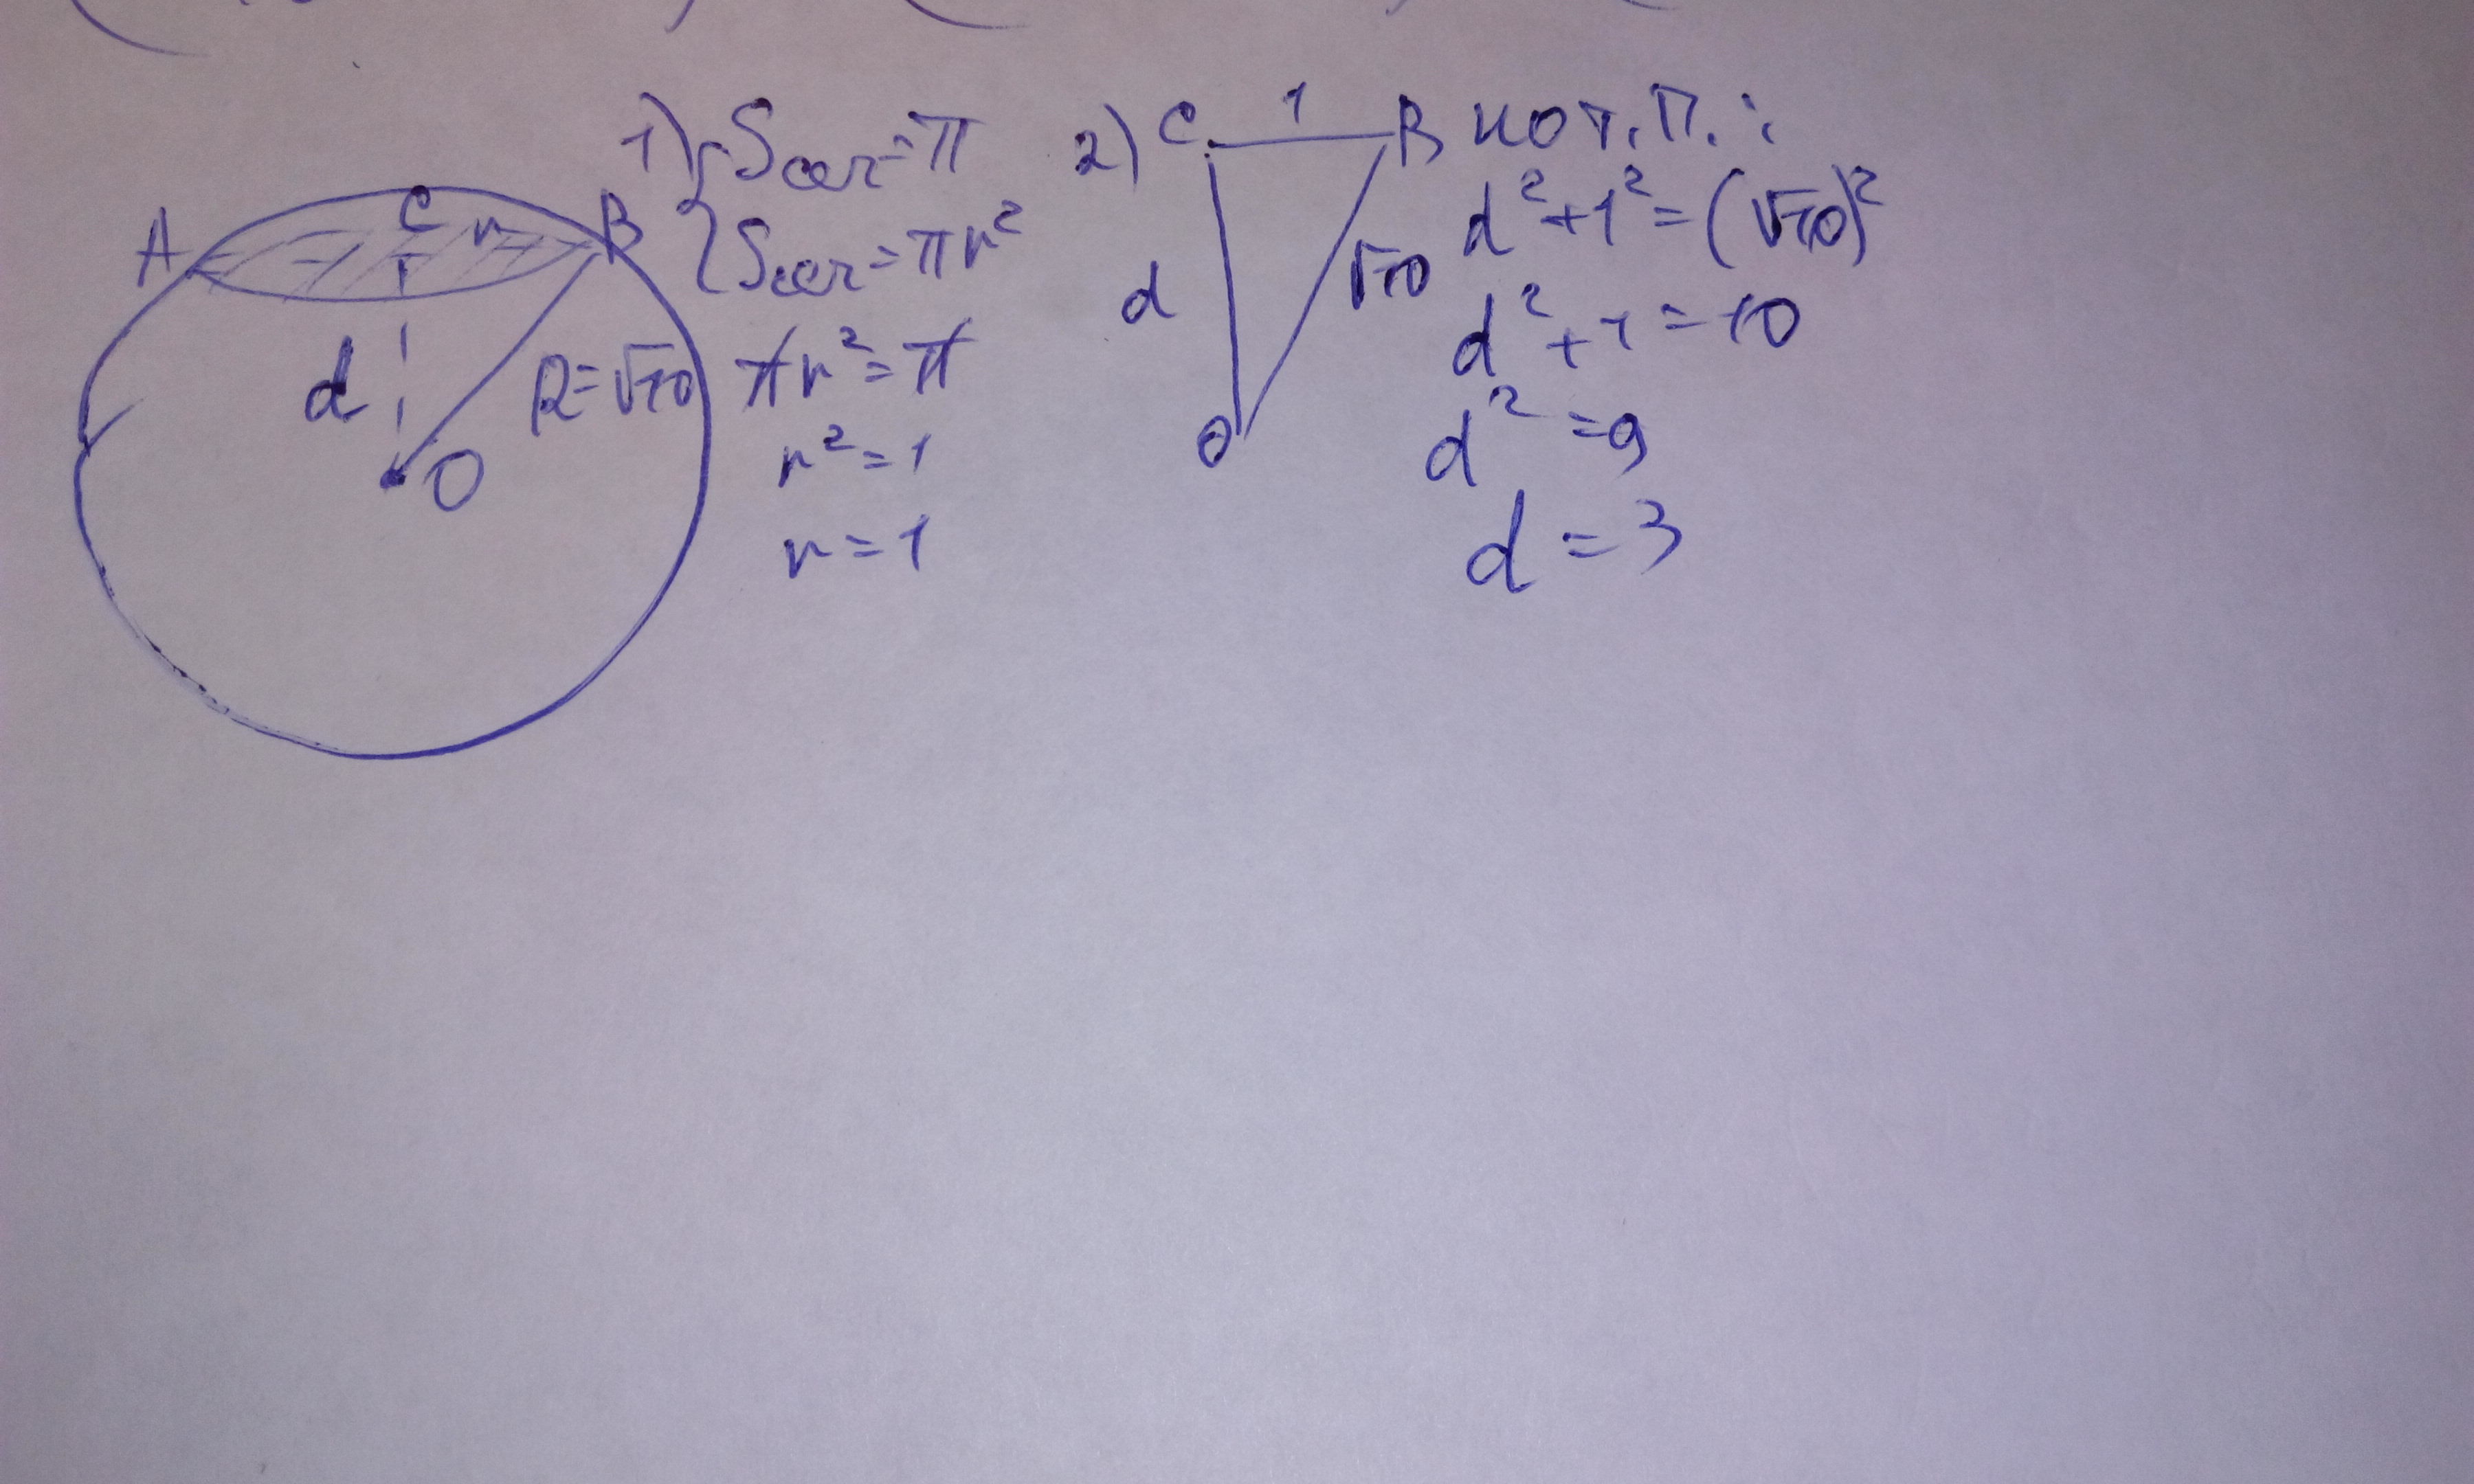 A
C
r
B
d
R=√10
O
1) { Sсеч=π
Sсеч=πr²
πr²=π
r²=1
r=1
2) C 1 B
d
√10
O
по т. П. :
d²+1²=(√10)²
d²+1=10
d²=9
d=3